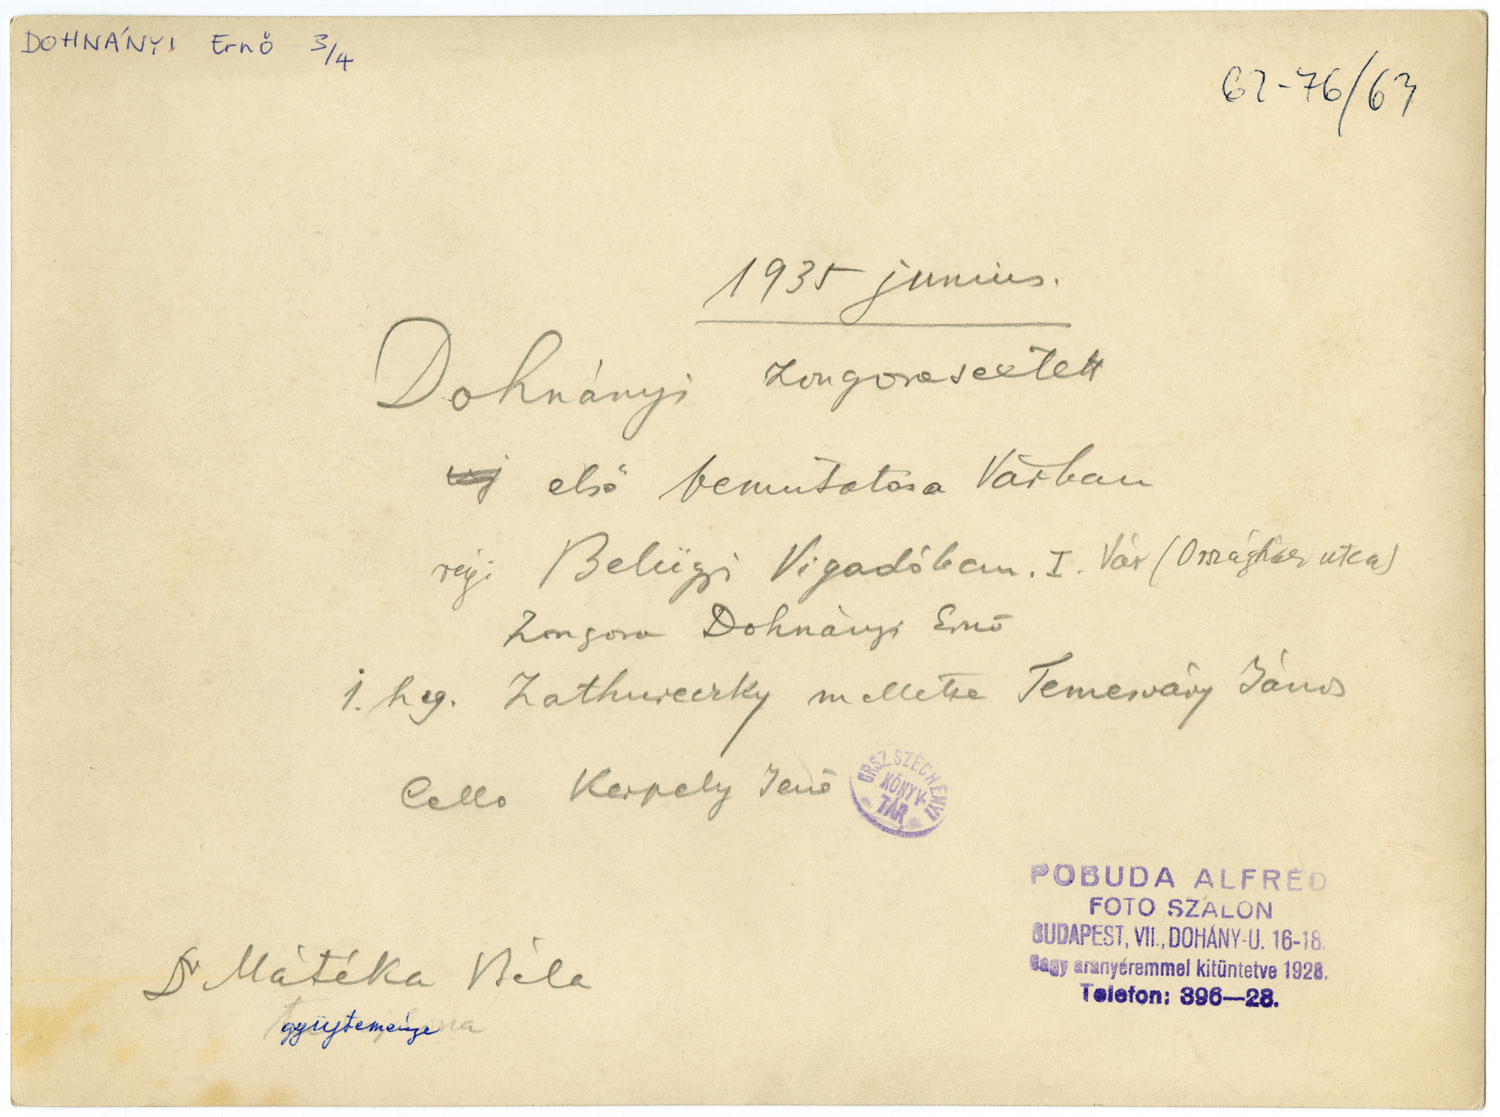 DOHNÁNYI Ernő 3/4
62-76/63
1935 junius.
Dohnányi zongorasextett
első bemutatása Várban
régi Belügyi Vigadóban. I. Vár (Országház utca)
Zongora Dohnányi Ernő
1. heg. Zathureczky mellette Temesváry János
Cello Kerpely Jenő
ORSZ. SZÉCHÉNYI
KÖNYV-
TÁR
POBUDA ALFRÉD
FOTO SZALON
BUDAPEST, VII., DOHÁNY-U. 16-18.
Nagy aranyéremmel kitüntetve 1928.
Telefon: 396—28.
Dr Mátéka Béla
gyüjteménye